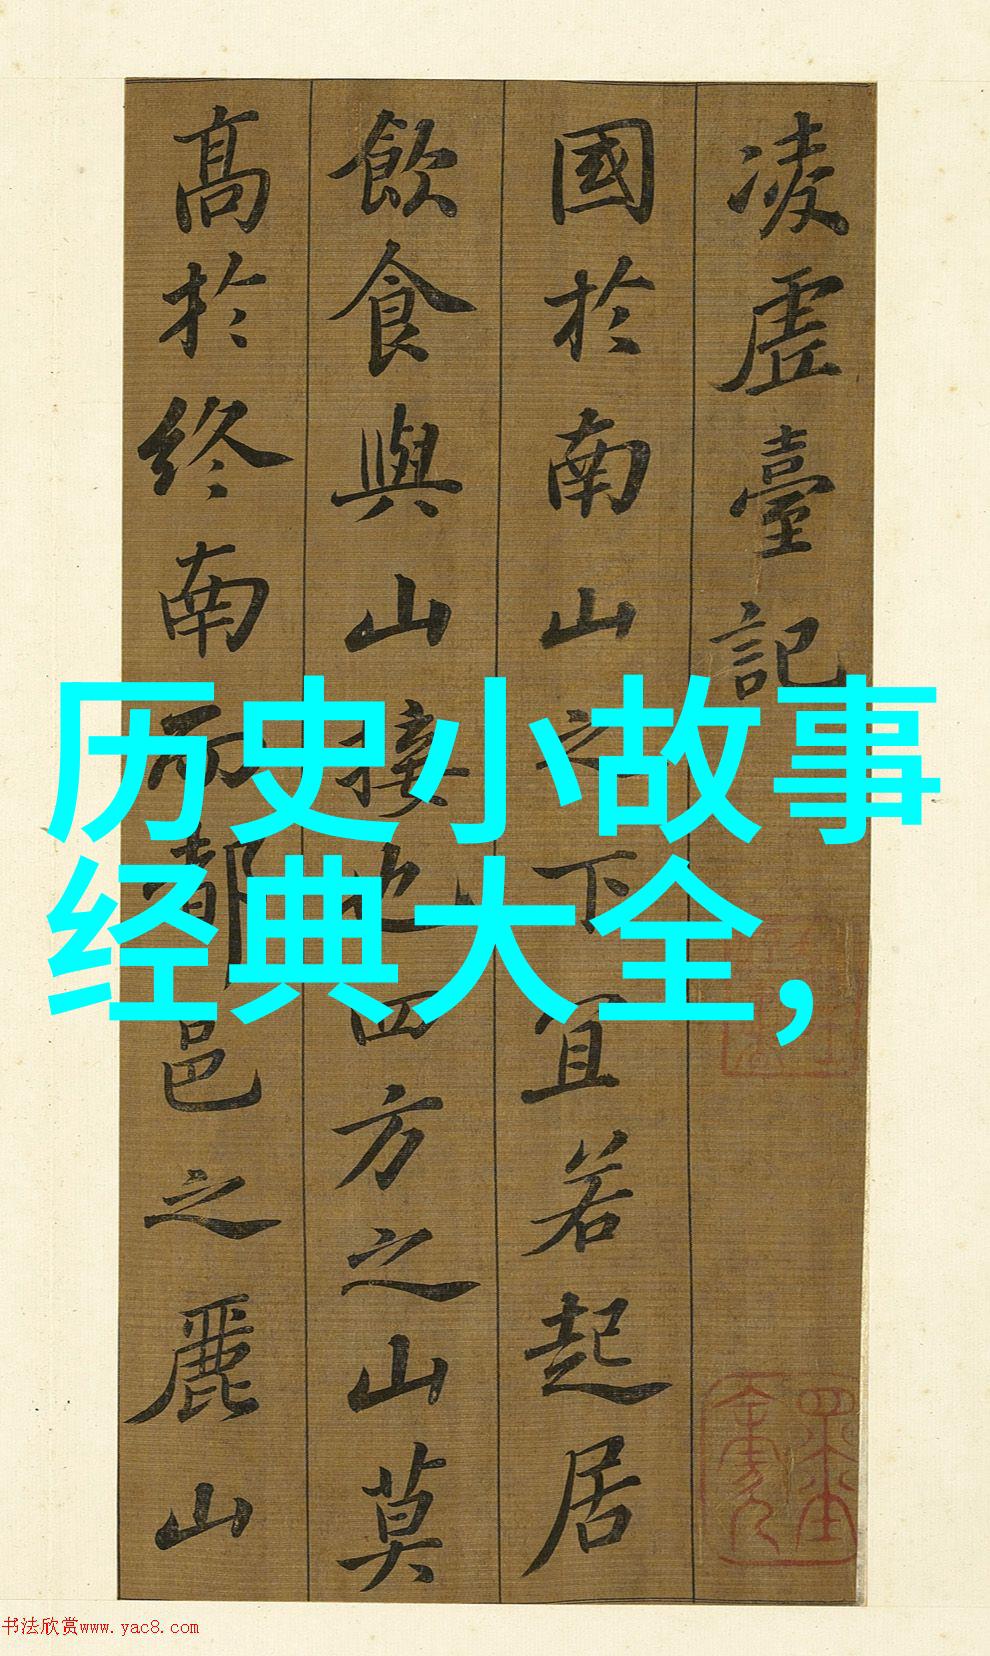 凌虛臺記
國於南山之下宜若起居
飲食與山接也四方之山莫
高於終南而都邑之麗山
历史小故事
经典大全,
书法欣赏www.yac8.com